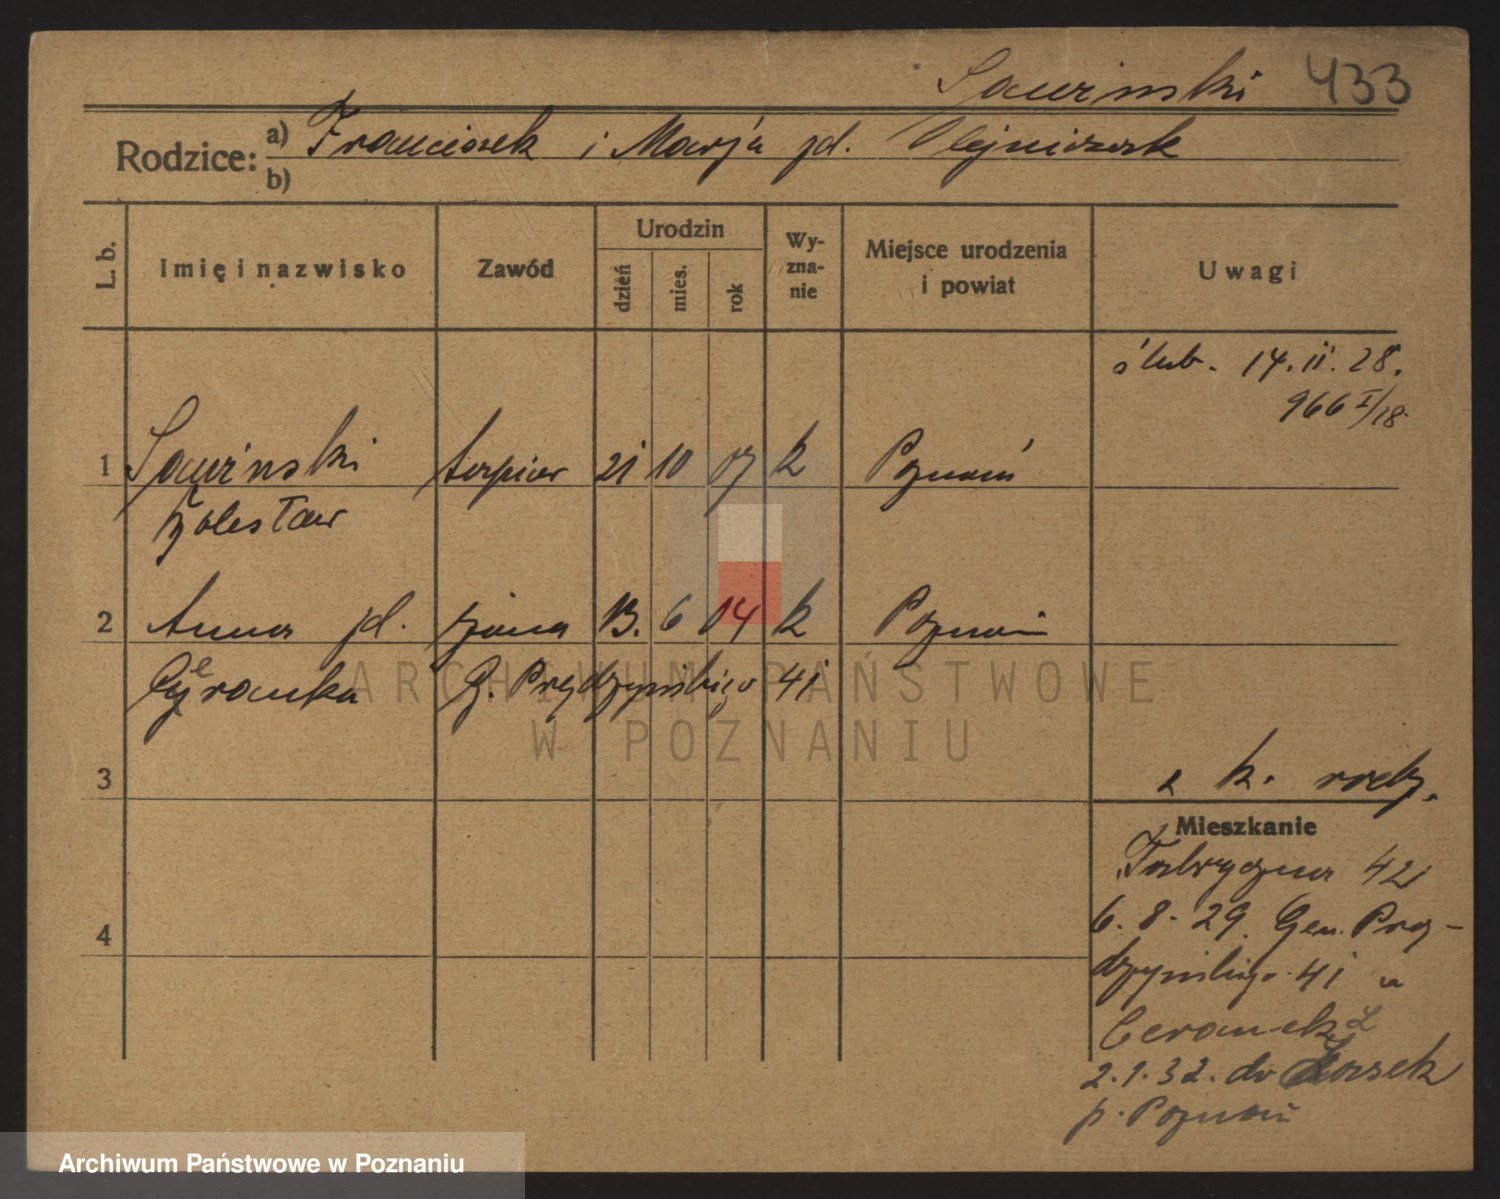 Sawinski 433
Rodzice: a) Franciszek i Marja zd. Olejniczak
b)
L. b. Imię i nazwisko Zawód Urodzin dzień mies. rok Wyznanie Miejsce urodzenia i powiat Uwagi
ślub. 14. II. 28.
966 I/18
1 Sawinski tapicer 21 10 07 k Poznań
Bolesław
2 Anna zd. żona 13. 6 14 k Poznań
Ceranka G. Prądzyńskiego 41
ARCHIWUM PAŃSTWOWE
W POZNANIU
3 z k. rodz.
Mieszkanie
Fabryczna 42
4 6. 8. 29. Gen. Prą-
dzyńskiego 41 u
Ceranek
2. 1. 32. do Lasek
p. Poznań
Archiwum Państwowe w Poznaniu